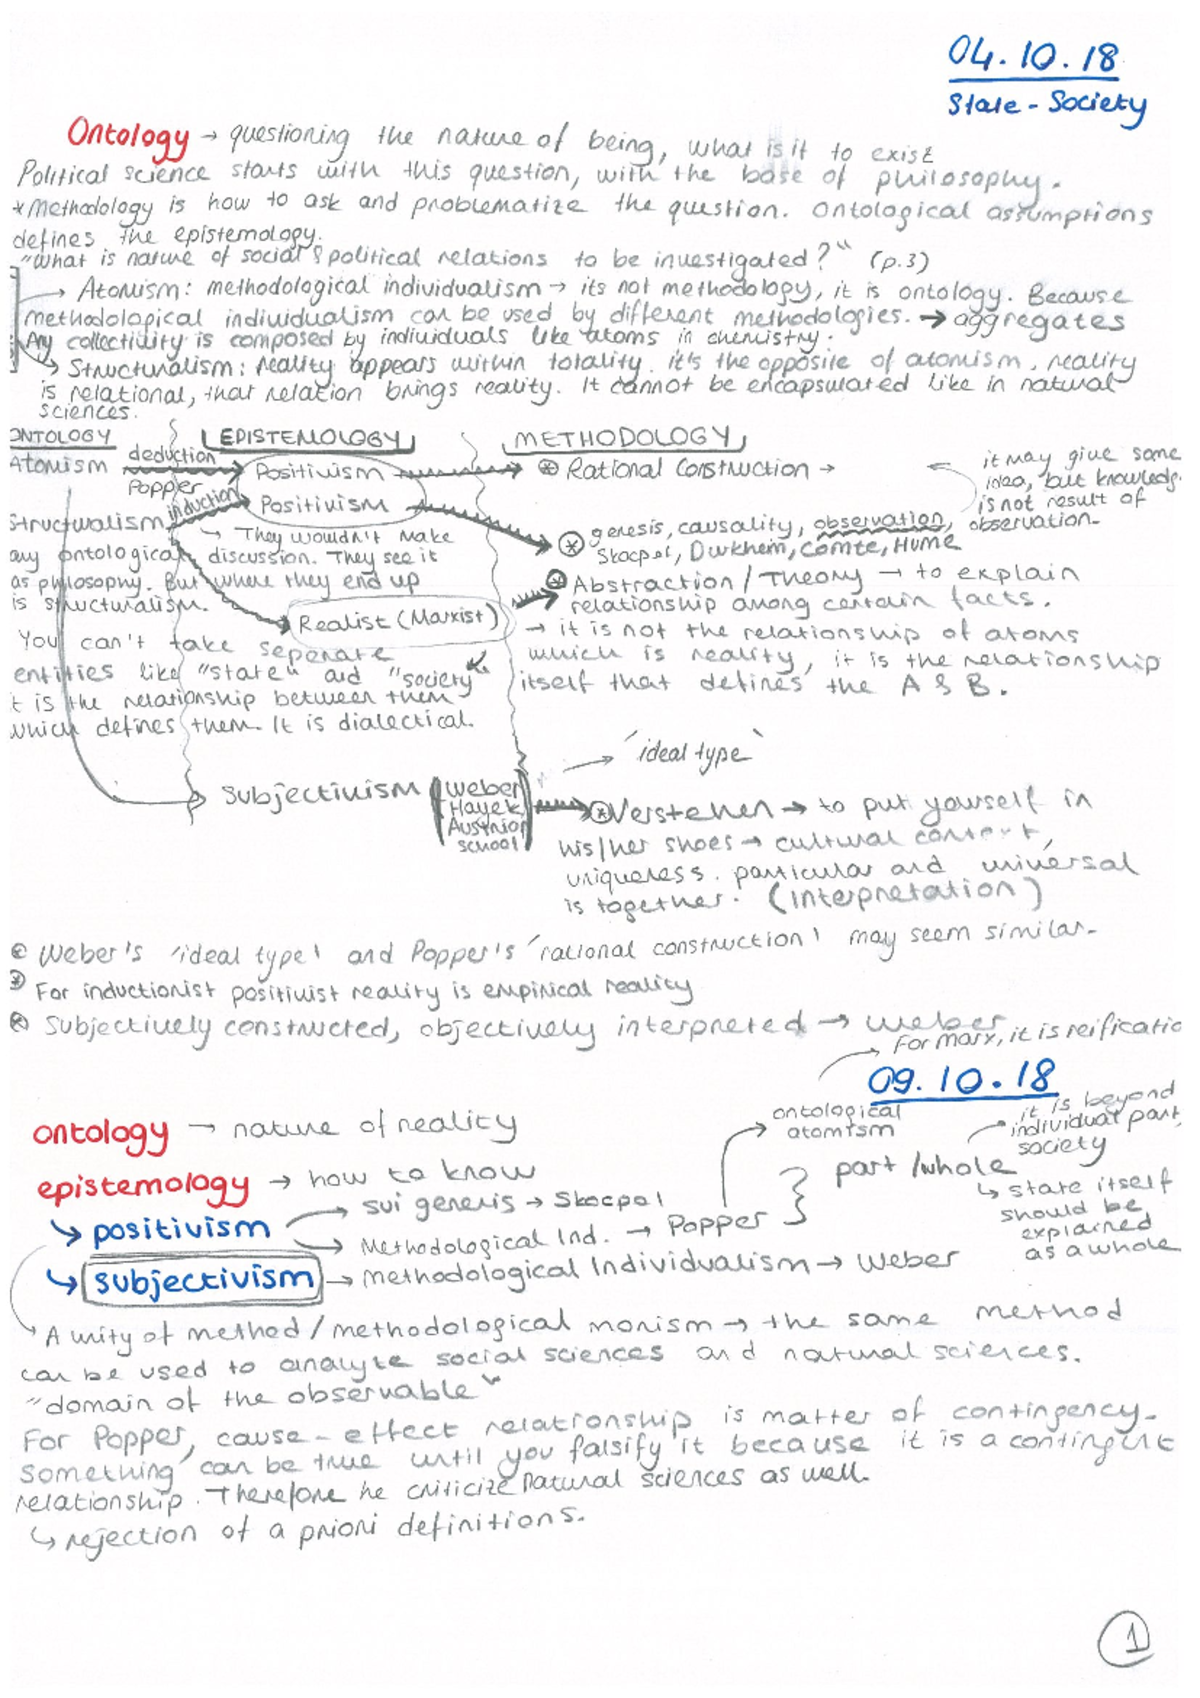 04.10.18
State - Society
Ontology → questioning the nature of being, what is it to exist
Political science starts with this question, with the base of philosophy.
* Methodology is how to ask and problematize the question. Ontological assumptions
defines the epistemology.
"What is nature of social & political relations to be investigated?" (p.3)
→ Atomism: methodological individualism → its not methodology, it is ontology. Because
methodological individualism can be used by different methodologies. → aggregates
Any collectivity is composed by individuals like atoms in chemistry.
→ Structuralism: reality appears within totality. it's the opposite of atomism, reality
is relational, that relation brings reality. It cannot be encapsulated like in natural
sciences.
ONTOLOGY
EPISTEMOLOGY
METHODOLOGY
Atomism
deduction
Popper
Positivism
⊛ Rational Construction →
it may give some
idea, but knowledg
is not result of
observation.
Structualism
induction
Positivism
⊛ genesis, causality, observation,
Skocpol, Durkheim, Comte, Hume
→ They wouldn't make
any ontological discussion. They see it
as philosophy. But where they end up
is structualism.
Realist (Marxist)
⊛ Abstraction / Theory → to explain
relationship among certain facts.
→ it is not the relationship of atoms
which is reality, it is the relationship
itself that defines the A & B.
You can't take seperate
entities like "state" and "society"
t is the relationship between them
which defines them. It is dialectical.
Subjectivism
Weber
Hayek
Austrian
school
'ideal type'
⊛ Verstehen → to put yourself in
his/her shoes → cultural context,
uniqueness. particular and universal
is together. (interpretation)
⊛ Weber's 'ideal type' and Popper's 'rational construction' may seem similar.
⊛ For inductionist positivist reality is empirical reality
⊛ Subjectively constructed, objectively interpreted → Weber
For Marx, it is reificatio
09.10.18
ontology → nature of reality
epistemology → how to know
↳ positivism
sui generis → Skocpol
Methodological Ind. → Popper
ontological
atomism
part /whole
it is beyond
individual part,
society
↳ state itself
should be
explained
as a whole
↳ subjectivism → Methodological Individualism → Weber
A unity of method / methodological monism → the same method
can be used to analyte social sciences and natural sciences.
"domain of the observable"
For Popper, cause-effect relationship is matter of contingency.
Something can be true until you falsify it because it is a contingent
relationship. Therefore he criticize natural sciences as well.
↳ rejection of a priori definitions.
1